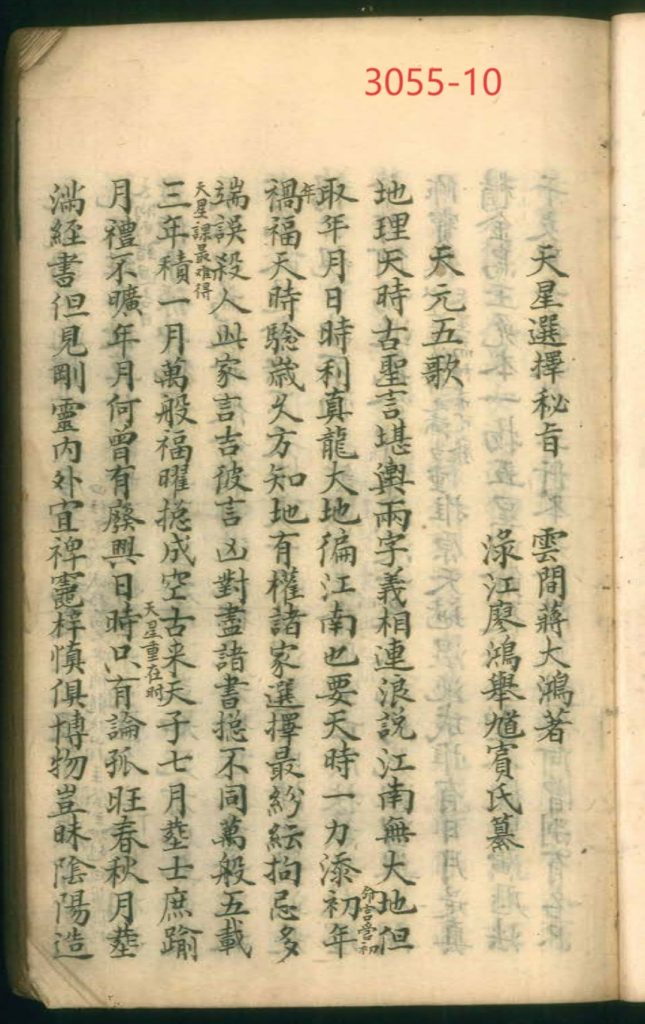 3055-10
天星選擇秘旨 雲間蔣大鴻著
淥江廖鴻舉馗賓氏纂
天元五歌
地理天時古聖言堪輿兩字義相連浪說江南無大地但
取年月日時利真龍大地徧江南也要天時一力添初年
命言營初年
禍福天時驗歲久方知地有權諸家選擇最紛紜拘忌多
端誤殺人此家言吉彼言凶對盡諸書揔不同萬般五載
天星課最难得
三年積一月萬般福曜揔成空古来天子七月塟士庶踰
月禮不曠年月何曾有廢興日時只有論孤旺春秋月塟
天星重在时
滿經書但見剛靈內外宜裨竈梓慎俱博物豈昧陰陽造